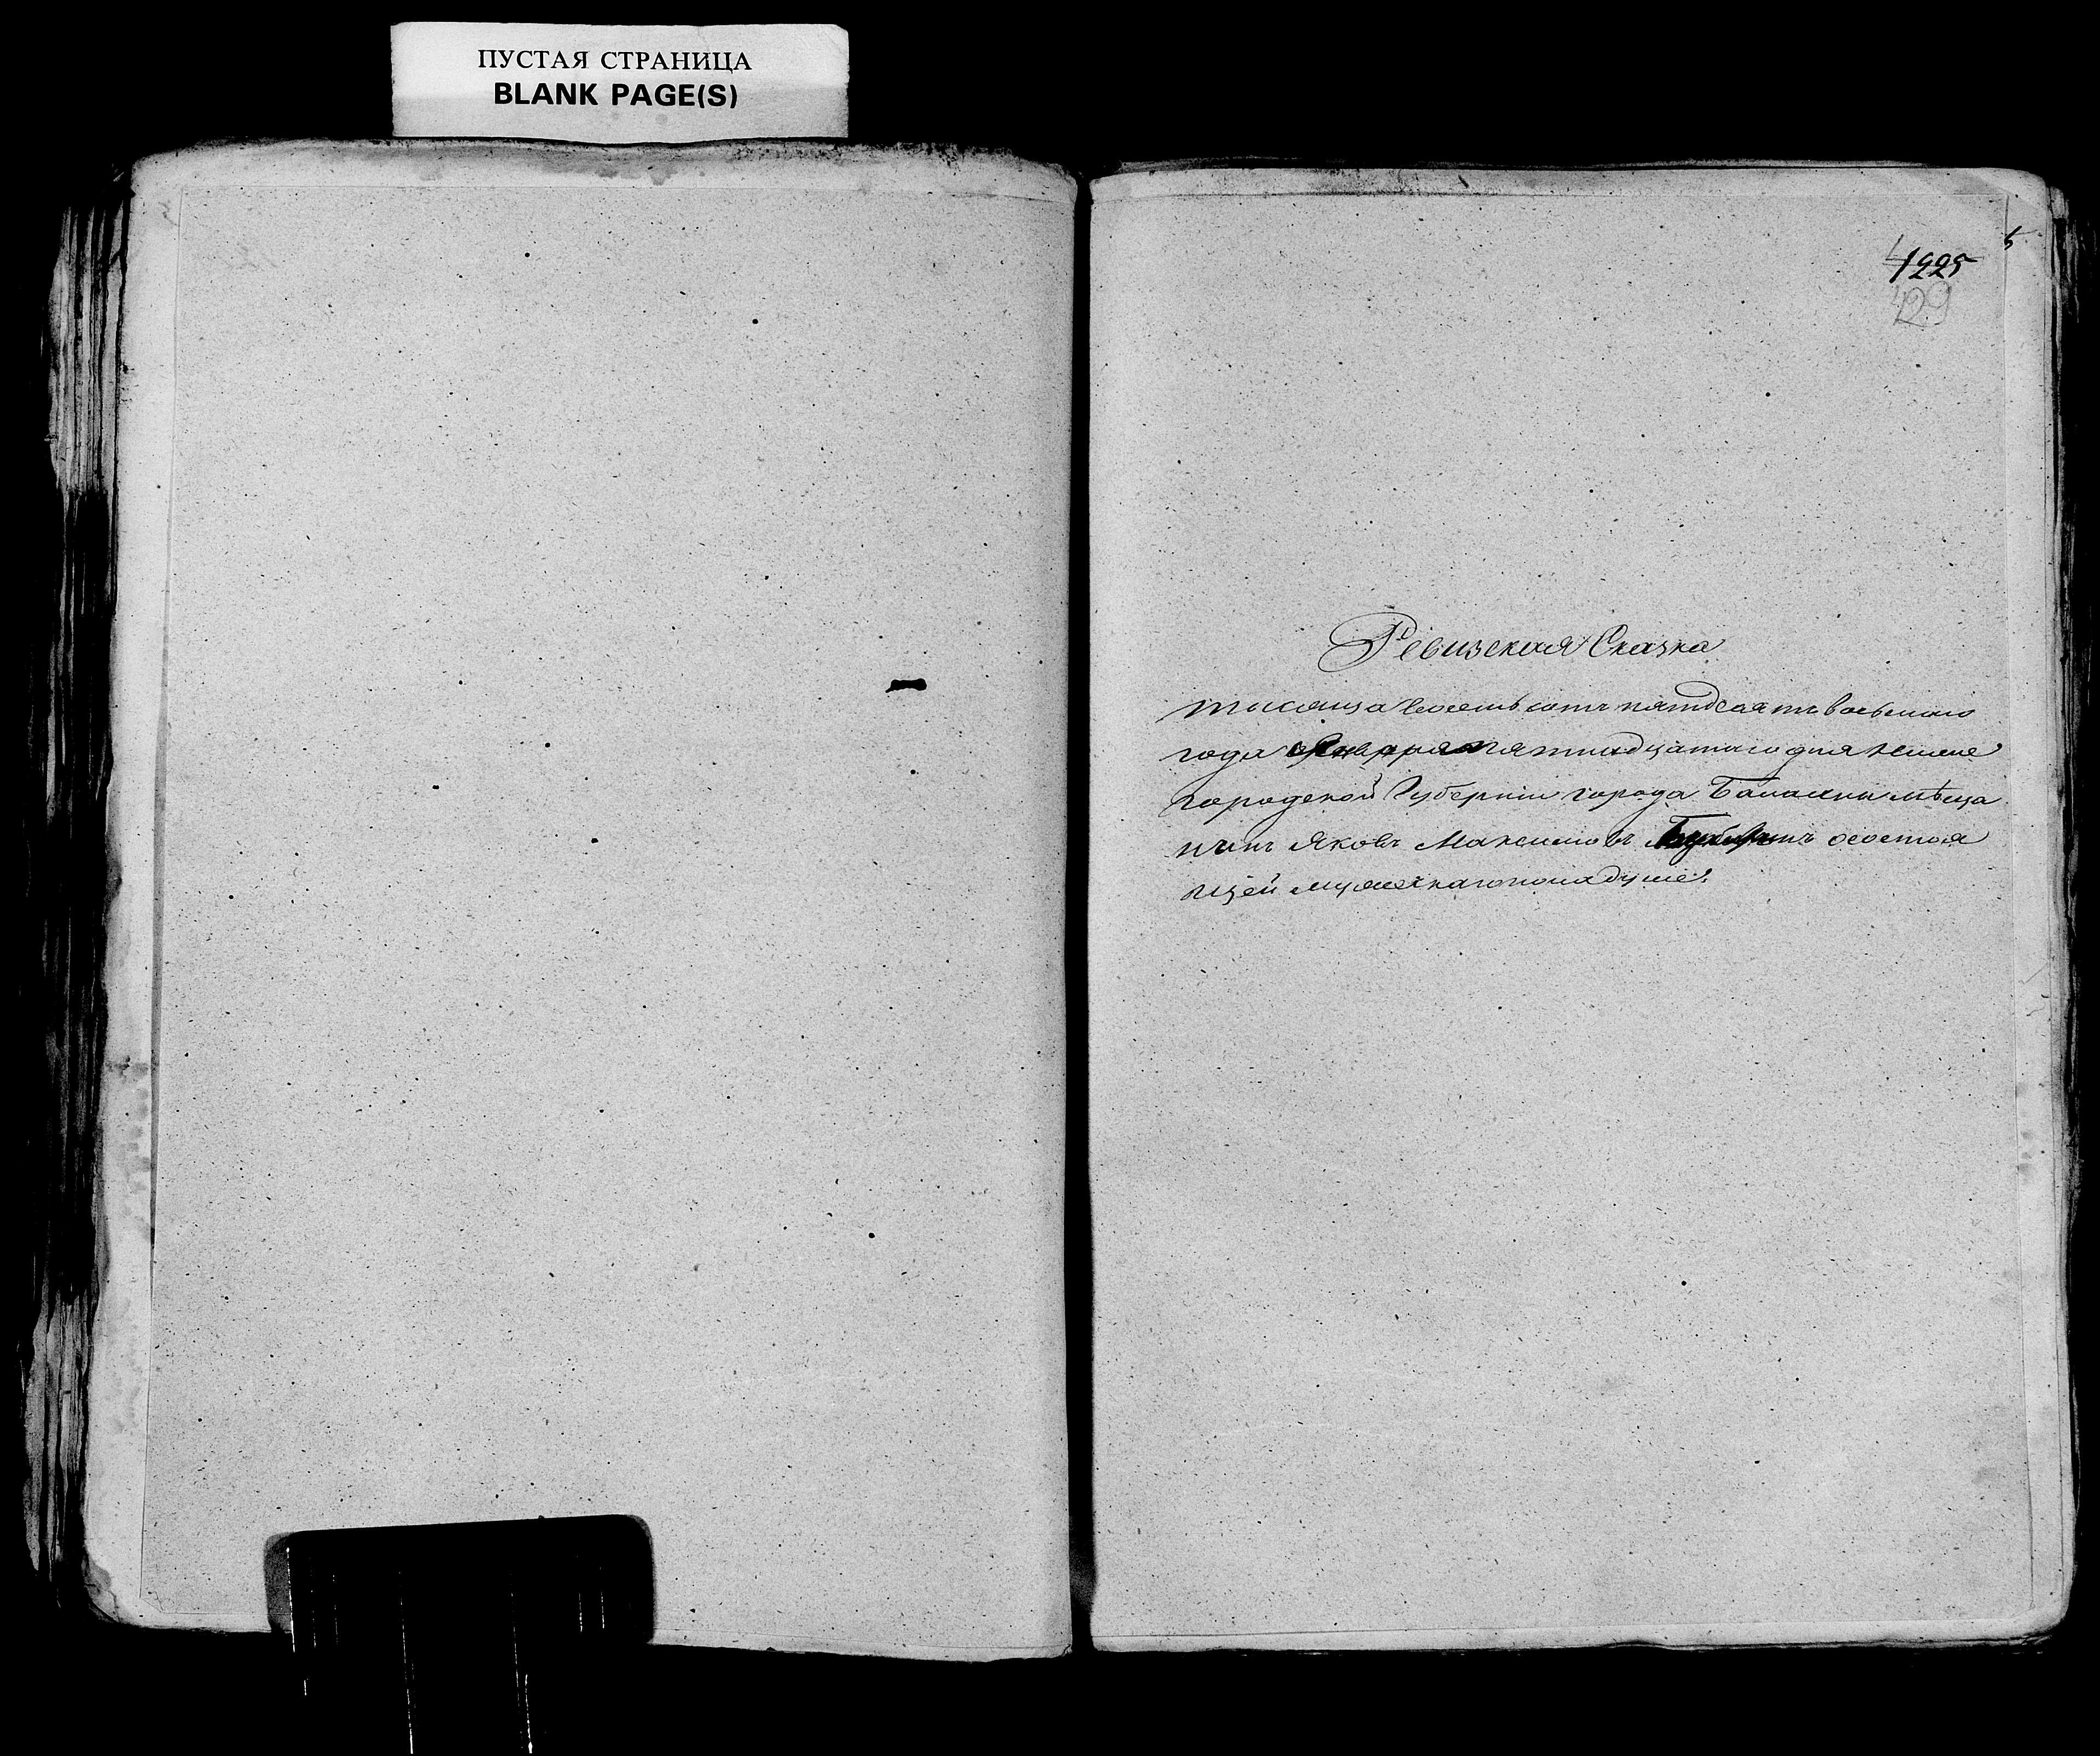 ПУСТАЯ СТРАНИЦА
BLANK PAGE(S)
1225
429
Ревизская Сказка
тысяща восемь сотъ пятдесятъ восьмого
года Января пятнадцатаго дня Нижне
городской Губерніи города Балахны мѣща
нинъ Яковъ Максимовъ осостоя
щей мужескаго пола душе.